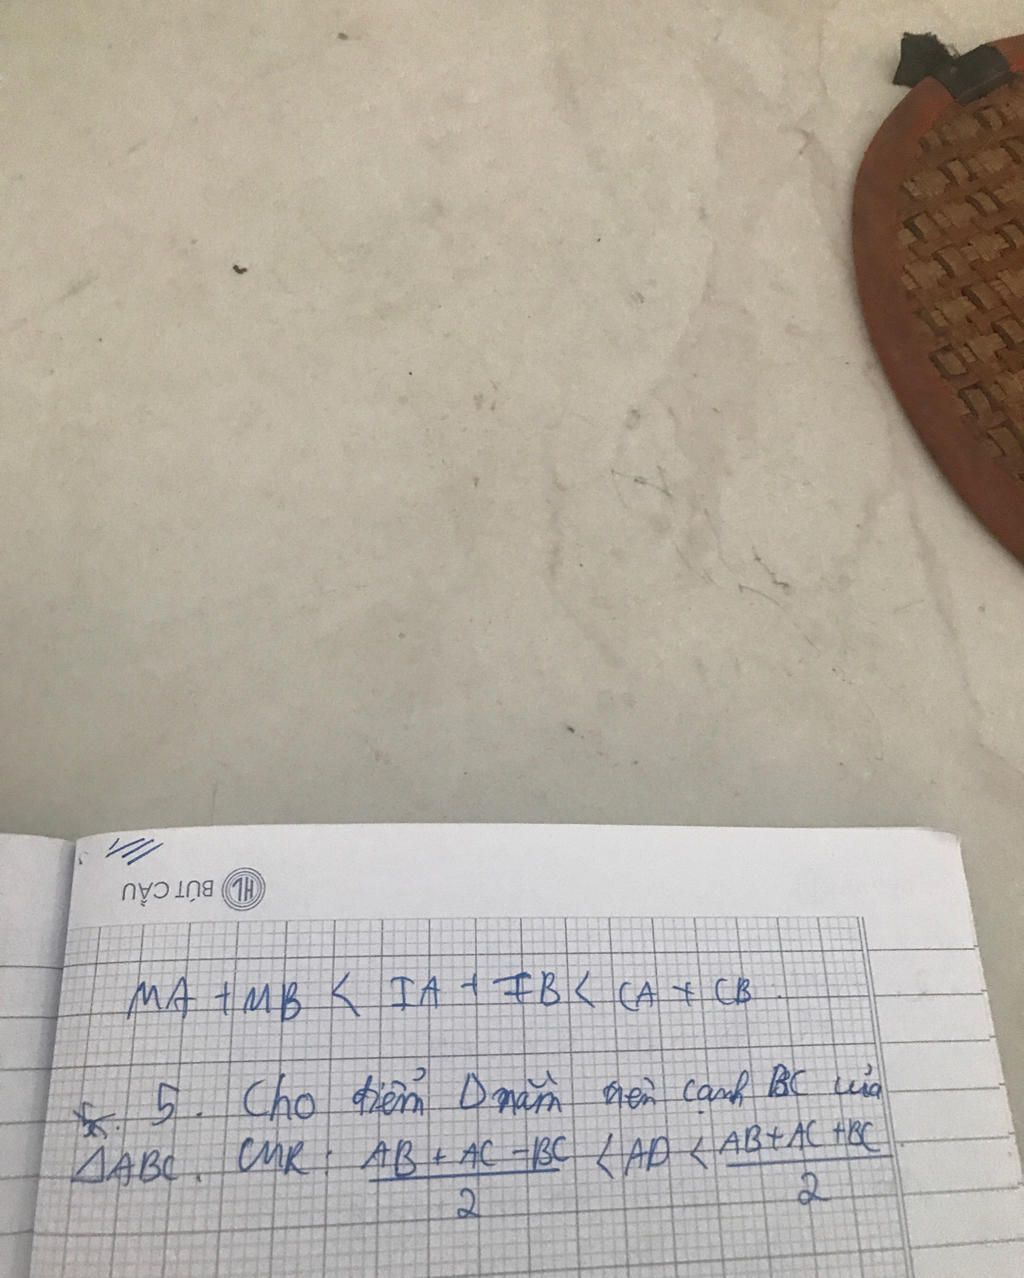 HL BÚT CẦU
MA + MB < IA + IB < CA + CB.
5. Cho điểm D nằm trên cạnh BC của
ΔABC. CMR: \frac{AB + AC - BC}{2} < AD < \frac{AB + AC + BC}{2}